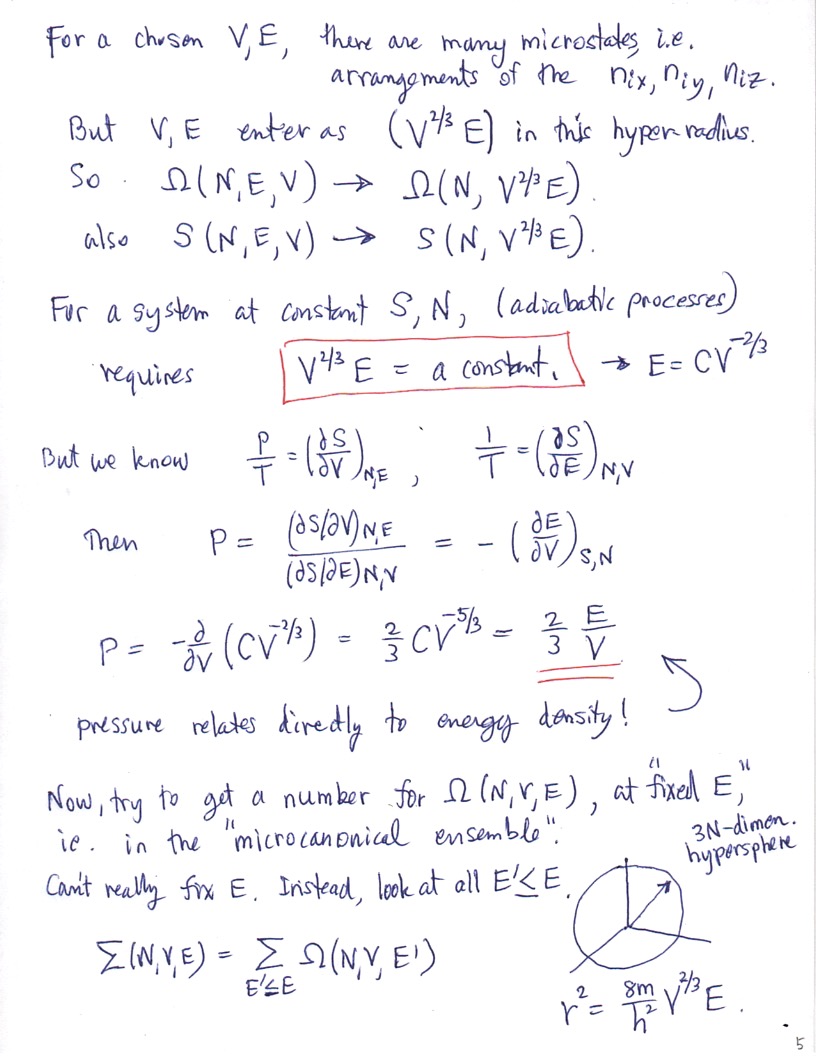 For a chosen V, E, there are many microstates, i.e.
arrangements of the nix, niy, niz.
But V, E enter as (V^2/3 E) in this hyper-radius.
So Ω(N,E,V) → Ω(N, V^2/3 E).
also S(N,E,V) → S(N, V^2/3 E).
For a system at constant S, N, (adiabatic processes)
requires V^2/3 E = a constant. → E = CV^-2/3
But we know P/T = (∂S/∂V)N,E , 1/T = (∂S/∂E)N,V
Then P = (∂S/∂V)N,E / (∂S/∂E)N,V = - (∂E/∂V)S,N
P = -∂/∂V (CV^-2/3) = 2/3 CV^-5/3 = 2/3 E/V
pressure relates directly to energy density!
Now, try to get a number for Ω(N,V,E), at "fixed E,"
ie. in the "microcanonical ensemble".
3N-dimen.
hypersphere
Can't really fix E. Instead, look at all E' ≤ E.
Σ(N,V,E) = Σ E'≤E Ω(N,V,E')
r^2 = 8m/h^2 V^2/3 E.
5